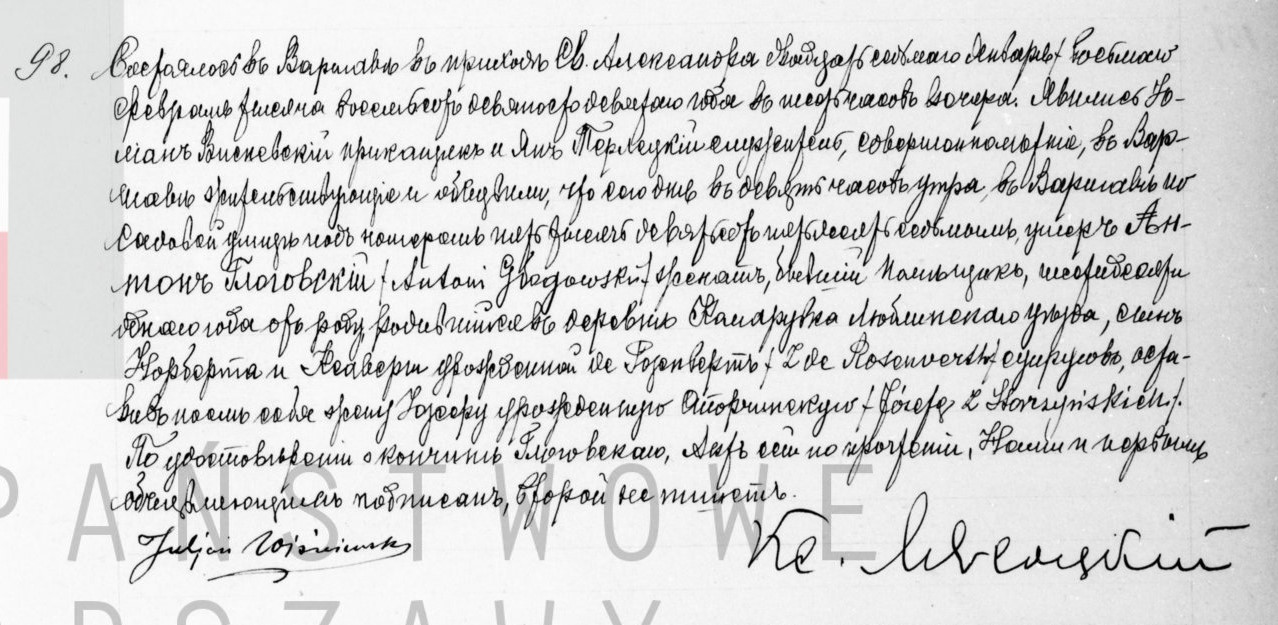 98. Состоялось въ Варшавѣ въ приходѣ Св. Александра двадцать седьмаго Января / восьмаго
Февраля тысяча восемьсотъ девяносто девятаго года въ шесть часовъ вечера. Явились Ю-
ліанъ Висневскій прикащикъ и Янъ служитель, совершеннолѣтніе, въ Вар-
шавѣ жительствующіе и объявили, что сего дня въ девять часовъ утра, въ Варшавѣ по
Садовой улицѣ подъ номеромъ пять тысячъ девятьсотъ пятьдесятъ седьмымъ, умеръ Ан-
тонъ Глоговскій / Antoni Głogowski / женатъ, бывшій помѣщикъ, шестидесяти
одного года отъ роду, родившійся въ деревнѣ Камарувка Люблинскаго уѣзда, сынъ
Норберта и Ксаверы урожденной де Розенвертъ / z de Rosenwerth / супруговъ, оста-
вивъ послѣ себя жену Юзефу урожденную / Józefę z Starzyńskich /.
По удостовѣреніи о кончинѣ Глоговскаго, Актъ сей по прочтеніи, Нами и первымъ
объявляющимъ подписанъ, второй не пишетъ.
Juljan Wiśniewski
Кс.
PAŃSTWOWE